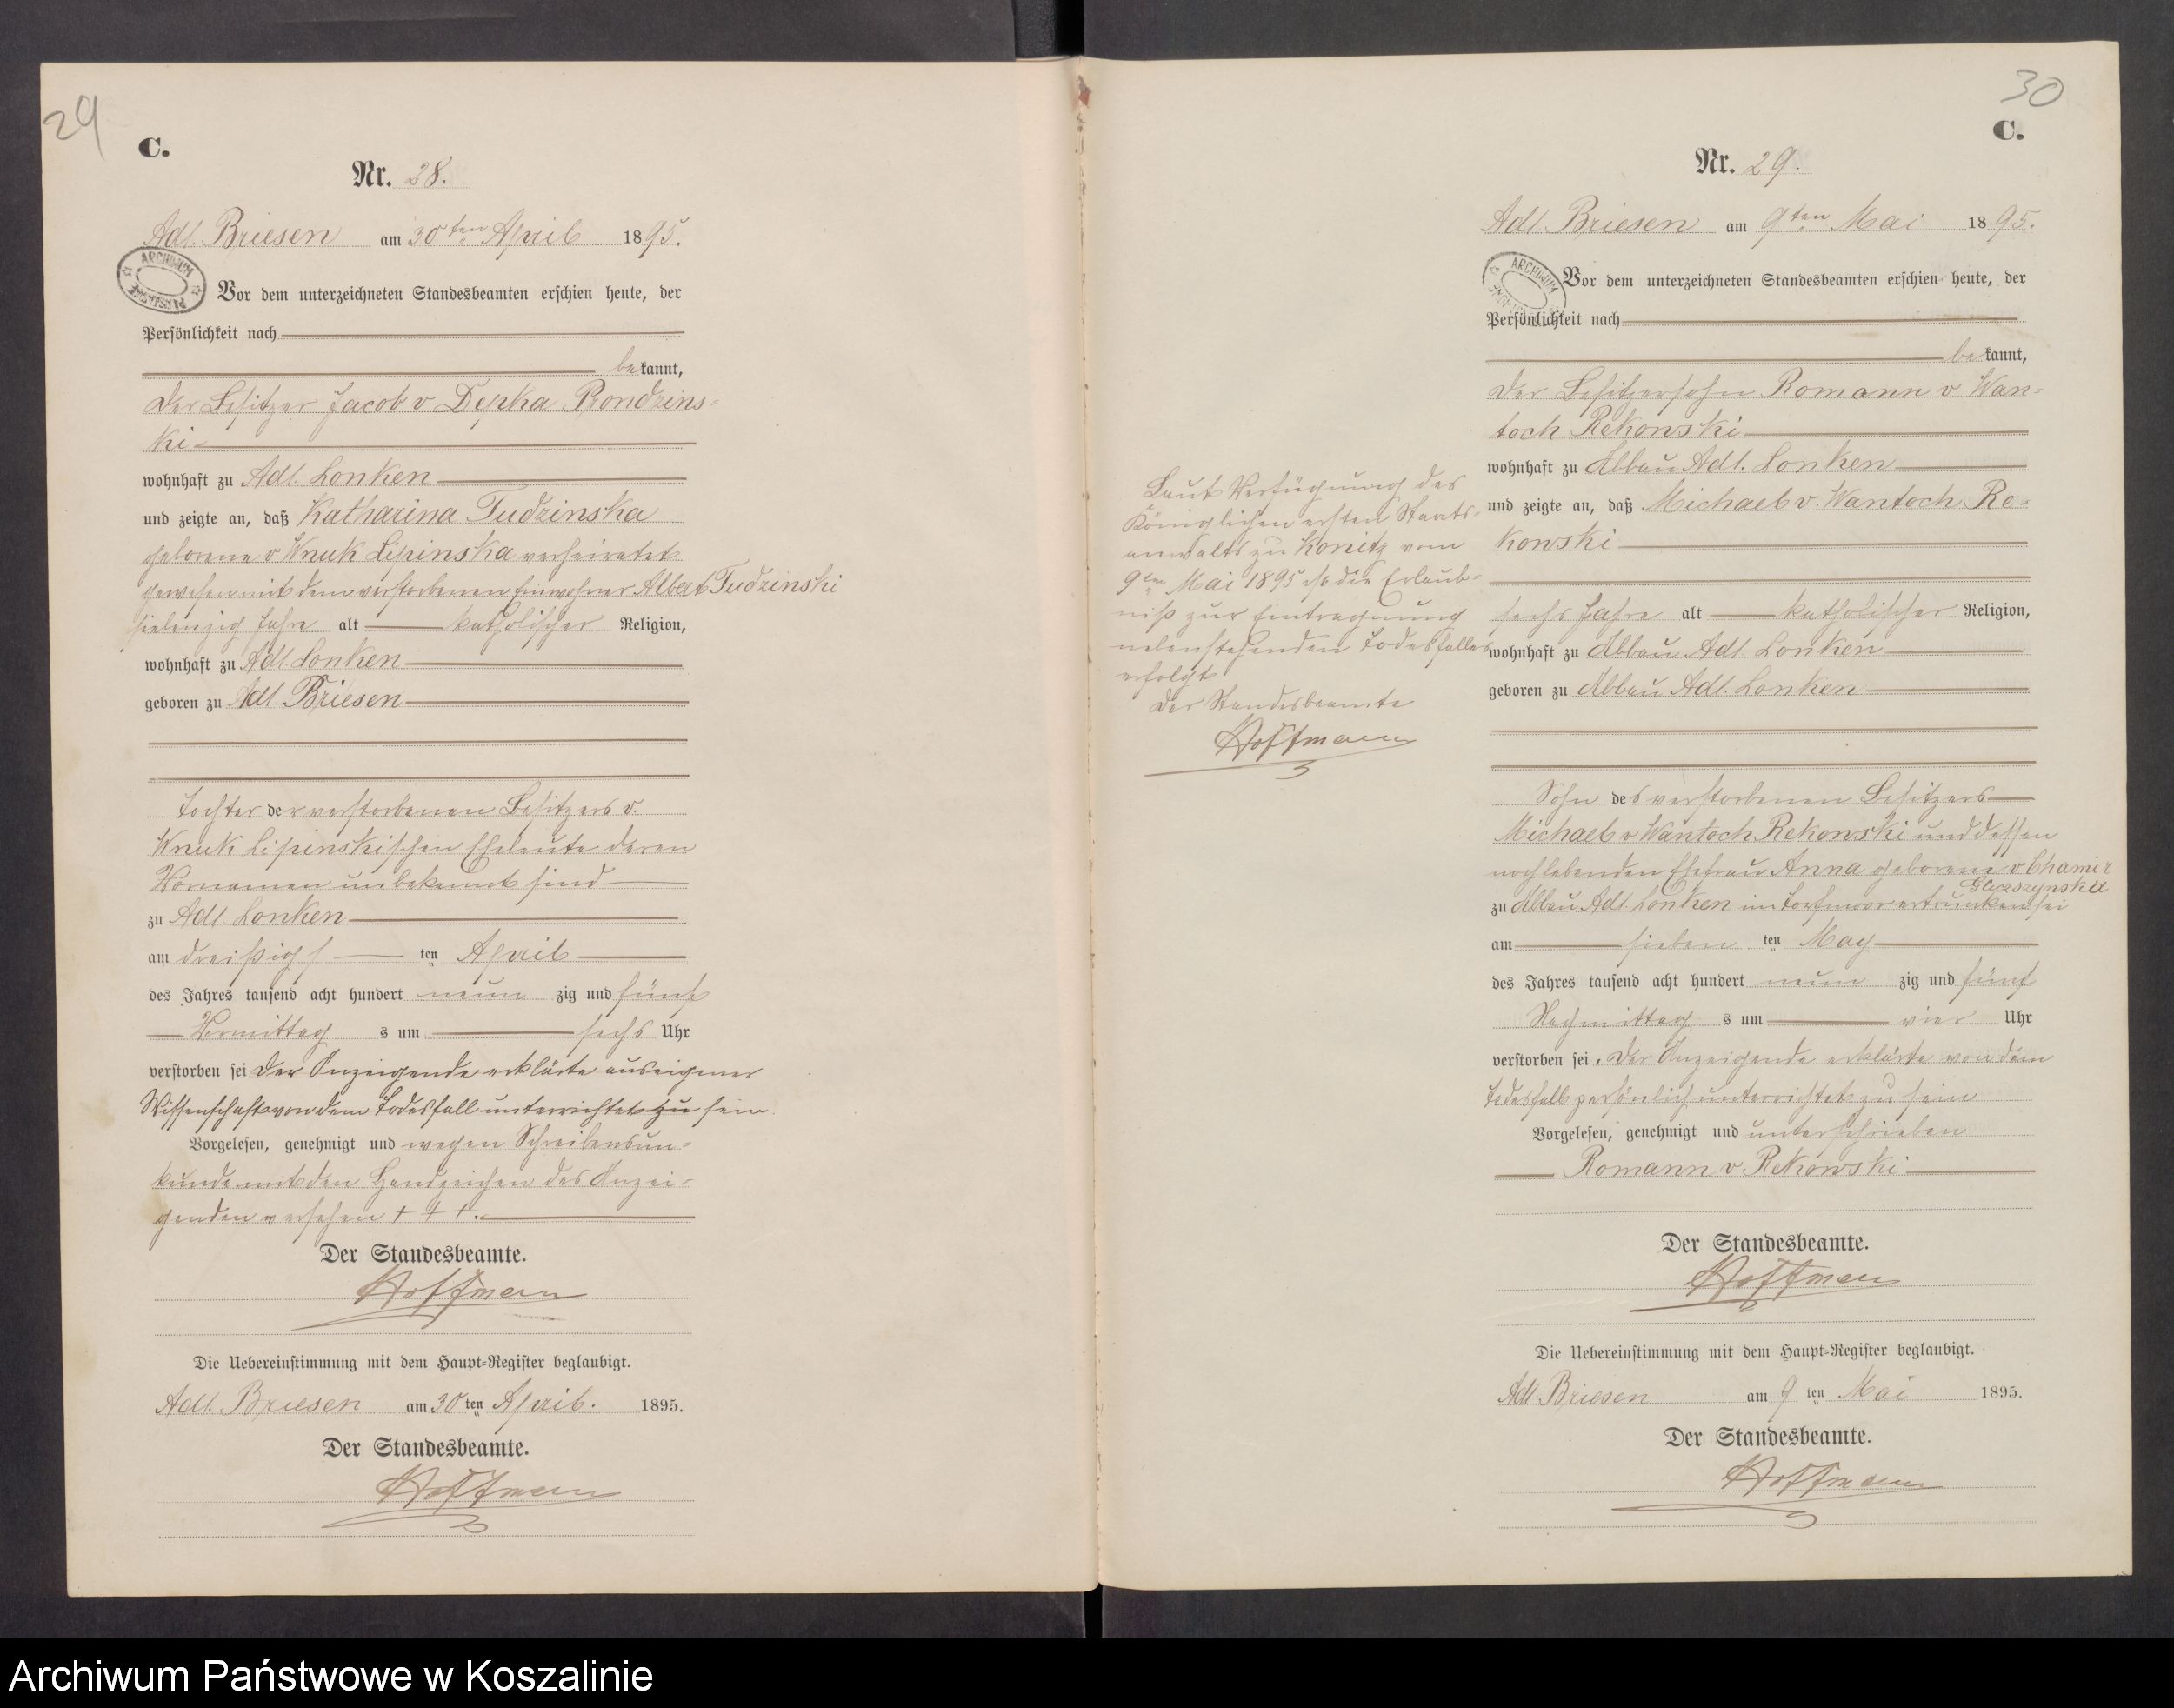 29
C.
Nr. 28.
Adl. Briesen am 30ten April 1895.
ARCHIWUM
Vor dem unterzeichneten Standesbeamten erschien heute, der
Persönlichkeit nach
bekannt,
der Besitzer Jacob v Depka Prondzins-
ki
wohnhaft zu Adl. Lonken
und zeigte an, daß Katharina Tudzinska
geborene v Wnuk Lipinska verheiratet
gewesen mit dem verstorbenen Einwohner Albert Tudzinski
siebenzig Jahre alt katholischer Religion,
wohnhaft zu Adl. Lonken
geboren zu Adl Briesen
Tochter der verstorbenen Besitzers v.
Wnuk Lipinskischen Eheleute deren
Vornamen unbekannt sind
zu Adl. Lonken
am dreißigs ten April
des Jahres tausend acht hundert neun zig und fünf
Vormittag s um sechs Uhr
verstorben sei der Anzeigende erklärte aus eigener
Wissenschaft von dem Todesfall unterrichtet zu sein.
Vorgelesen, genehmigt und wegen Schreibensun-
kunde mit den Handzeichen des Anzei-
genden versehen + + +.
Der Standesbeamte.
Hoffmann
Die Uebereinstimmung mit dem Haupt-Register beglaubigt.
Adl. Briesen am 30ten April. 1895.
Der Standesbeamte.
Hoffmann
30
C.
Nr. 29.
Adl. Briesen am 9ten Mai 1895.
ARCHIWUM
Vor dem unterzeichneten Standesbeamten erschien heute, der
Persönlichkeit nach
bekannt,
der Besitzersohn Romann v Wan-
toch Rekowski
wohnhaft zu Abbau Adl. Lonken
und zeigte an, daß Michael v. Wantoch Re-
kowski
sechs Jahre alt katholischer Religion,
wohnhaft zu Abbau Adl Lonken
geboren zu Abbau Adl. Lonken
Sohn des verstorbenen Besitzers
Michael v Wantoch Rekowski und dessen
noch lebenden Ehefrau Anna geborene v Chamir
Gliszczynska
zu Abbau Adl. Lonken im Torfmoor ertrunken sei
am sieben ten May
des Jahres tausend acht hundert neun zig und fünf
Nachmittag s um vier Uhr
verstorben sei. Der Anzeigende erklärte von dem
Todesfall persönlich unterrichtet zu sein
Vorgelesen, genehmigt und unterschrieben
Romann v Rekowski
Der Standesbeamte.
Hoffmann
Die Uebereinstimmung mit dem Haupt-Register beglaubigt.
Adl Briesen am 9 ten Mai 1895.
Der Standesbeamte.
Hoffmann
Laut Verfügung des
Königlichen ersten Staats-
anwalts zu Konitz vom
9ten Mai 1895 ist die Erlaub-
niß zur Eintragung
nebenstehenden Todesfalles
erfolgt
Der Standesbeamte
Hoffmann
Archiwum Państwowe w Koszalinie